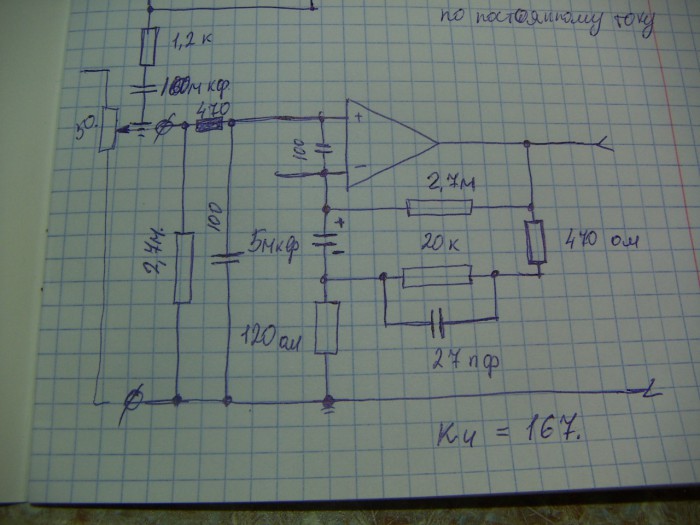 по постоянному току
1,2 к
100мкф
470
50.
+
100
−
2,7м
2,7м.
100
5мкф
+
−
20 к
470 ом
120 ом
27 пф
Ku = 167.